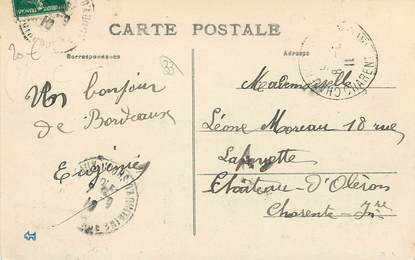 CARTE POSTALE
Correspondance
Adresse
20€
33
Un bonjour
de Bordeaux
Eugénie
Mademoiselle
Léone Moreau 18 rue
Lafayette
Château-D'Oléron
Charente-Inre
35